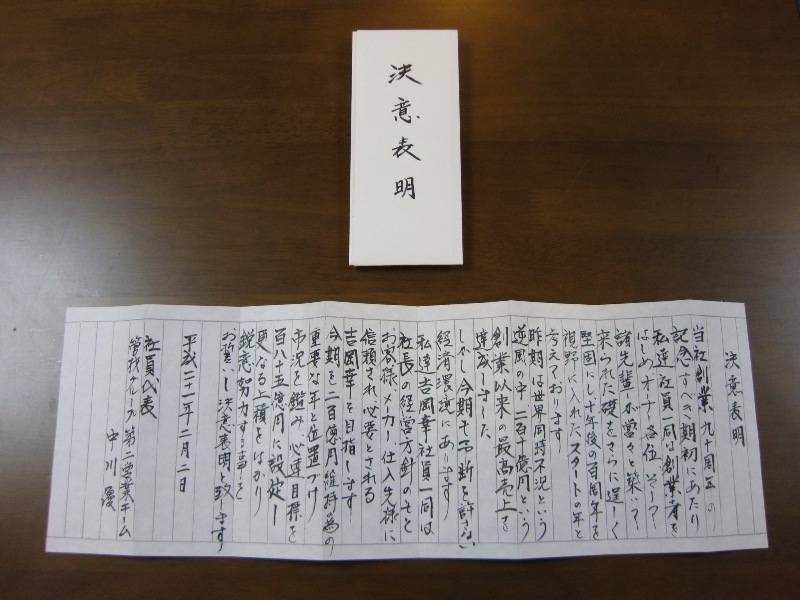 決意表明
決意表明
当社創業九十周年の
記念すべき期初にあたり
私達社員一同は創業者を
はじめ
諸先輩が営々と築いて
来られた礎をさらに逞しく
堅固にし十年後の百周年を
視野に入れたスタートの年と
考えております
昨期は世界同時不況という
逆風の中二百十億円という
創業以来の最高売上を
達成しました
しかし今期も予断を許さない
経済環境にあります
私達吉岡幸社員一同は
社長の経営方針のもと
お客様メーカー仕入先様に
信頼され必要とされる
吉岡幸を目指します
今期を二百億円維持の為の
重要な年と位置づけ
市況を鑑み必達目標を
百八十五億円に設定し
更なる上積をはかり
鋭意努力する事を
お誓いし決意表明と致します
平成二十一年二月二日
社員代表
管材グループ第二営業チーム
中川優